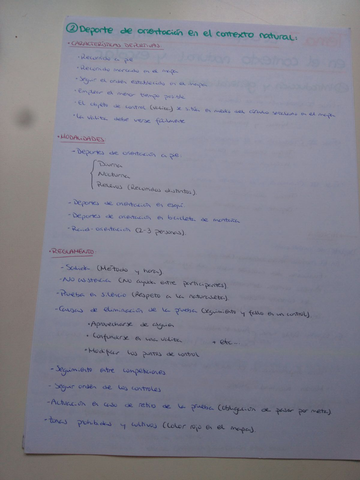 ② Deporte de orientación en el contexto natural:
· CARACTERÍSTICAS
- Recorrido a pie
- Recorrido marcado en el mapa
- Seguir el orden establecido en el mapa
- Emplear el menor tiempo posible
- El objeto de control
- La baliza debe verse fácilmente
· MODALIDADES
- Deportes de orientación a pie.
Diurna
Nocturna
Relevos (Recorridos distintos)
- Deportes de orientación en esquí
- Deportes de orientación en bicicleta de montaña
- Raid-orientación (2-3 personas)
· REGLAMENTO
- Salida (Método y hora)
- No asistencia (No ayuda entre participantes)
- Prueba en silencio (Respeto a la naturaleza)
- Causas de eliminación de la prueba (Seguimiento y fallo en un control)...
· Aprovecharse de alguien
· Confundirse en una baliza + etc...
· Modificar los puntos de control
- Seguimiento entre competidores
- Seguir orden de los controles
- Actuación en caso de retiro de la prueba (Obligación de pasar por meta)
- Zonas prohibidas y cultivos (Color rojo en el mapa)